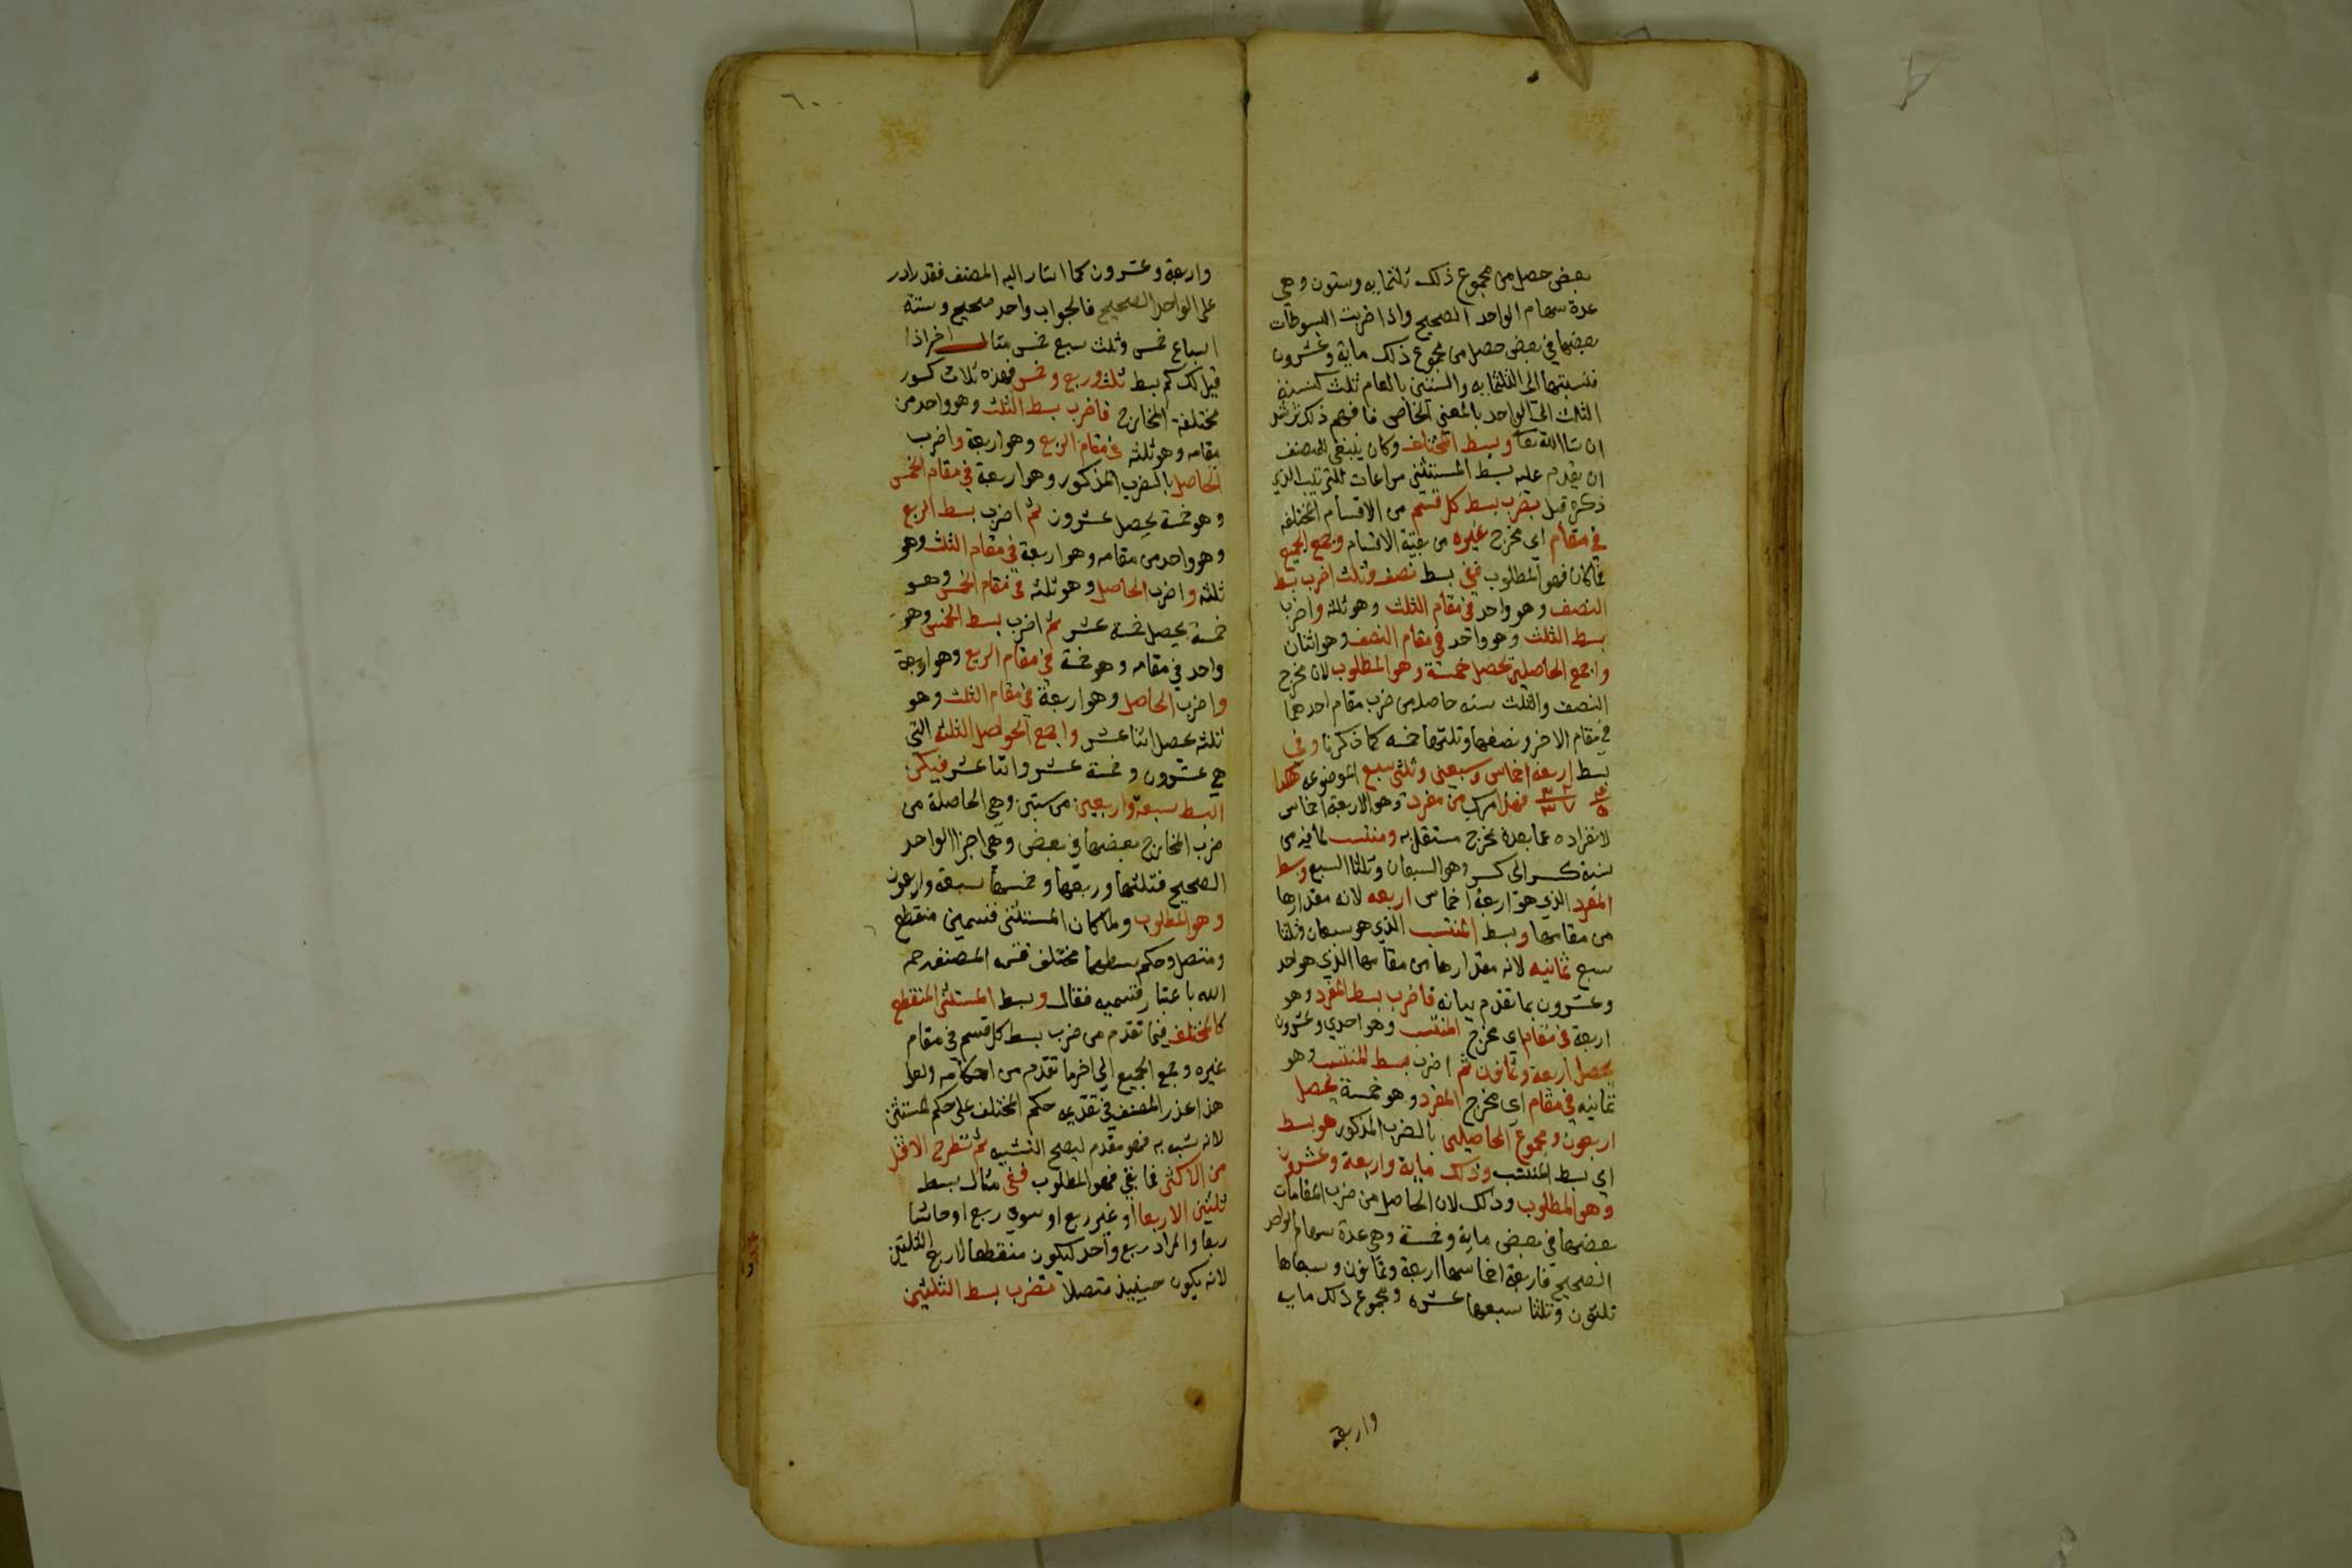 بعض حصل من مجموع ذلك ثلثمايه وستون وهي
عدة سهام الواحد الصحيح واذا ضربت البسوطات
بعضها في بعض حصل من مجموع ذلك ماية وعشرون
فنسبتها الى الثلثمايه والستين بالعام ثلث كنسبة
الثلث الى الواحد بالمعنى الخاص فافهم ذلك ترشد
ان شا الله تعا وبسط المختلف وكان ينبغي للمصنف
ان يقدم عليه بسط المستثنى مراعات للترتيب الذي
ذكره قبل بضرب بسط كل قسم من الاقسام المختلفه
في مقام اي مخرج غيره من بقية الاقسام وجمع الجميع
فما كان فهو المطلوب ففي بسط نصف وثلث اضرب بسط
النصف وهو واحد في مقام الثلث وهو ثلثه واضرب
بسط الثلث وهو واحد في مقام النصف وهو اثنان
واجمع الحاصلين تحصل خمسة وهو المطلوب لان مخرج
النصف والثلث سته حاصله من ضرب مقام احدهما
في مقام الاخر ونصفها وثلثها خمسه كما ذكرنا وفي
بسط اربعة اخماس وسبعين وثلثي سبع الموضوعه هكذا
٤/٥ ٢ ٢/٣ ٧ فهذا مركب من مفرد وهو الاربعة اخماس
لانفراده عما بعده بمخرج مستقل به ومنتسب لما فيه من
نسبة كسر الى كسر وهو السبعان وثلثا السبع وبسط
المفرد الذي هو اربعة اخماس اربعه لانه مقدارها
من مقامها وبسط المنتسب الذي هو سبعان وثلثا
سبع ثمانيه لانه مقدارها من مقامها الذي هو احد
وعشرون بما تقدم بيانه فاضرب بسط المفرد وهو
اربعة في مقام اي مخرج المنتسب وهو احدي وعشرون
يحصل اربعة وثمانون ثم اضرب بسط المنتسب وهو
ثمانيه في مقام اي مخرج المفرد وهو خمسة يحصل
اربعون ومجموع الحاصلين بالضرب المذكور هو بسط
اي بسط المنتسب وذلك ماية واربعة وعشرون
وهو المطلوب وذلك لان الحاصل من ضرب المقامات
بعضها في بعض ماية وخمسة وهي عدة سهام الواحد
الصحيح فاربعة اخماسها اربعة وثمانون وسبعاها
ثلثون وثلثا سبعها عشره ومجموع ذلك مايه
واربعة
٦٠
واربعة وعشرون كما اشار اليه المصنف فقد زاد
على الواحد الصحيح فالجواب واحد صحيح وستة
اسباع خمس وثلث سبع خمس مثال اخر اذا
قيل لك كم بسط ثلث وربع وخمس فهذه ثلاث كسور
مختلفة المخارج فاضرب بسط الثلث وهو واحد من
مقامه وهو ثلثه في مقام الربع وهو اربعة واضرب
الحاصل بالضرب المذكور وهو اربعة في مقام الخمس
وهو خمسة يحصل عشرون ثم اضرب بسط الربع
وهو واحد من مقامه وهو اربعة في مقام الثلث وهو
ثلثه واضرب الحاصل وهو ثلثه في مقام الخمس وهو
خمسة يحصل خمسة عشر ثم اضرب بسط الخمس وهو
واحد في مقامه وهو خمسة في مقام الربع وهو اربعة
واضرب الحاصل وهو اربعة في مقام الثلث وهو
ثلثه يحصل اثنا عشر واجمع الحواصل الثلثه التي
هي عشرون وخمسة عشر واثنا عشر فيكن
البسط سبعة واربعين من ستين وهي الحاصلة من
ضرب المخارج بعضها في بعض وهي اجزا الواحد
الصحيح فثلثها وربعها وخمسها سبعة واربعون
وهو المطلوب ولما كان المستثنى قسمين منقطع
ومتصل وحكم بسطهما مختلف قسم المصنف رحمه
الله باعتبار قسميه فقال وبسط المستثنى المنقطع
كالمختلف فيما تقدم من ضرب بسط كل قسم في مقام
غيره وجمع الجميع الى اخر ما تقدم من احكامه ولعل
هذا عذر المصنف في تقديمه حكم المختلف على حكم المستثنى
لانه شبه به فهو مقدم ليصح التشبيه ثم تطرح الاقل
من الاكثر فما بقي فهو المطلوب ففي مثال بسط
ثلثين الا ربعا او غير ربع او سوى ربع او حاشا
ربعا والمراد ربع واحد ليكون منقطعا لا ربع الثلثين
لانه يكون حينيذ متصلا فتضرب بسط الثلثين